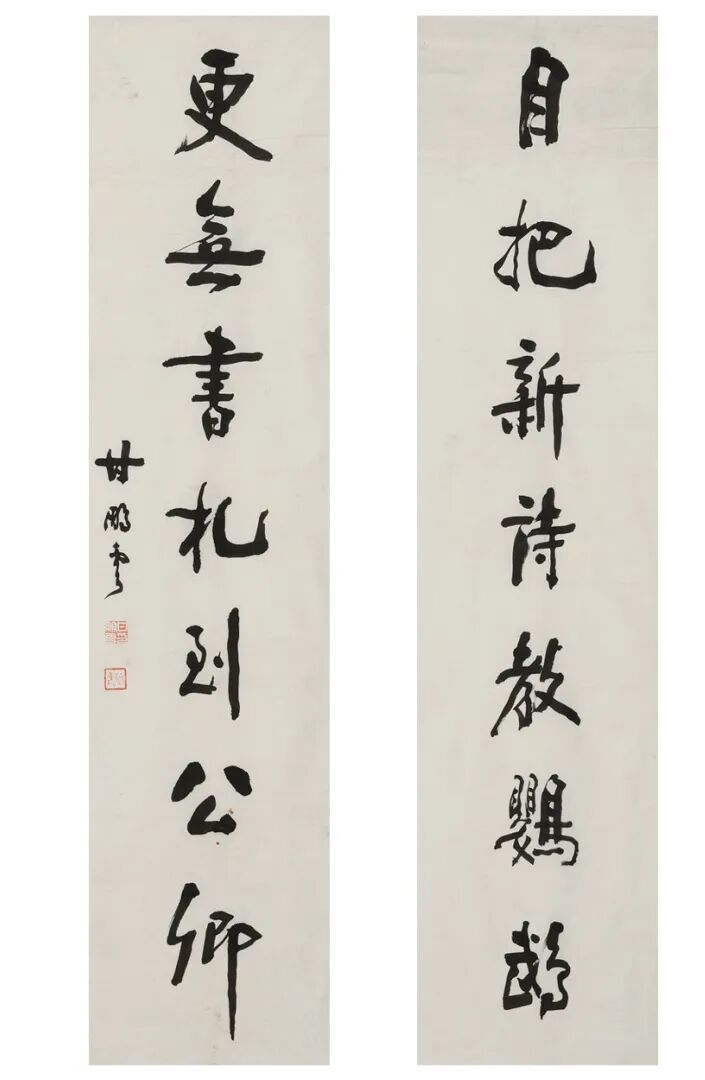 自把新詩教鸚鵡
更無書札到公卿
甘鵬雲